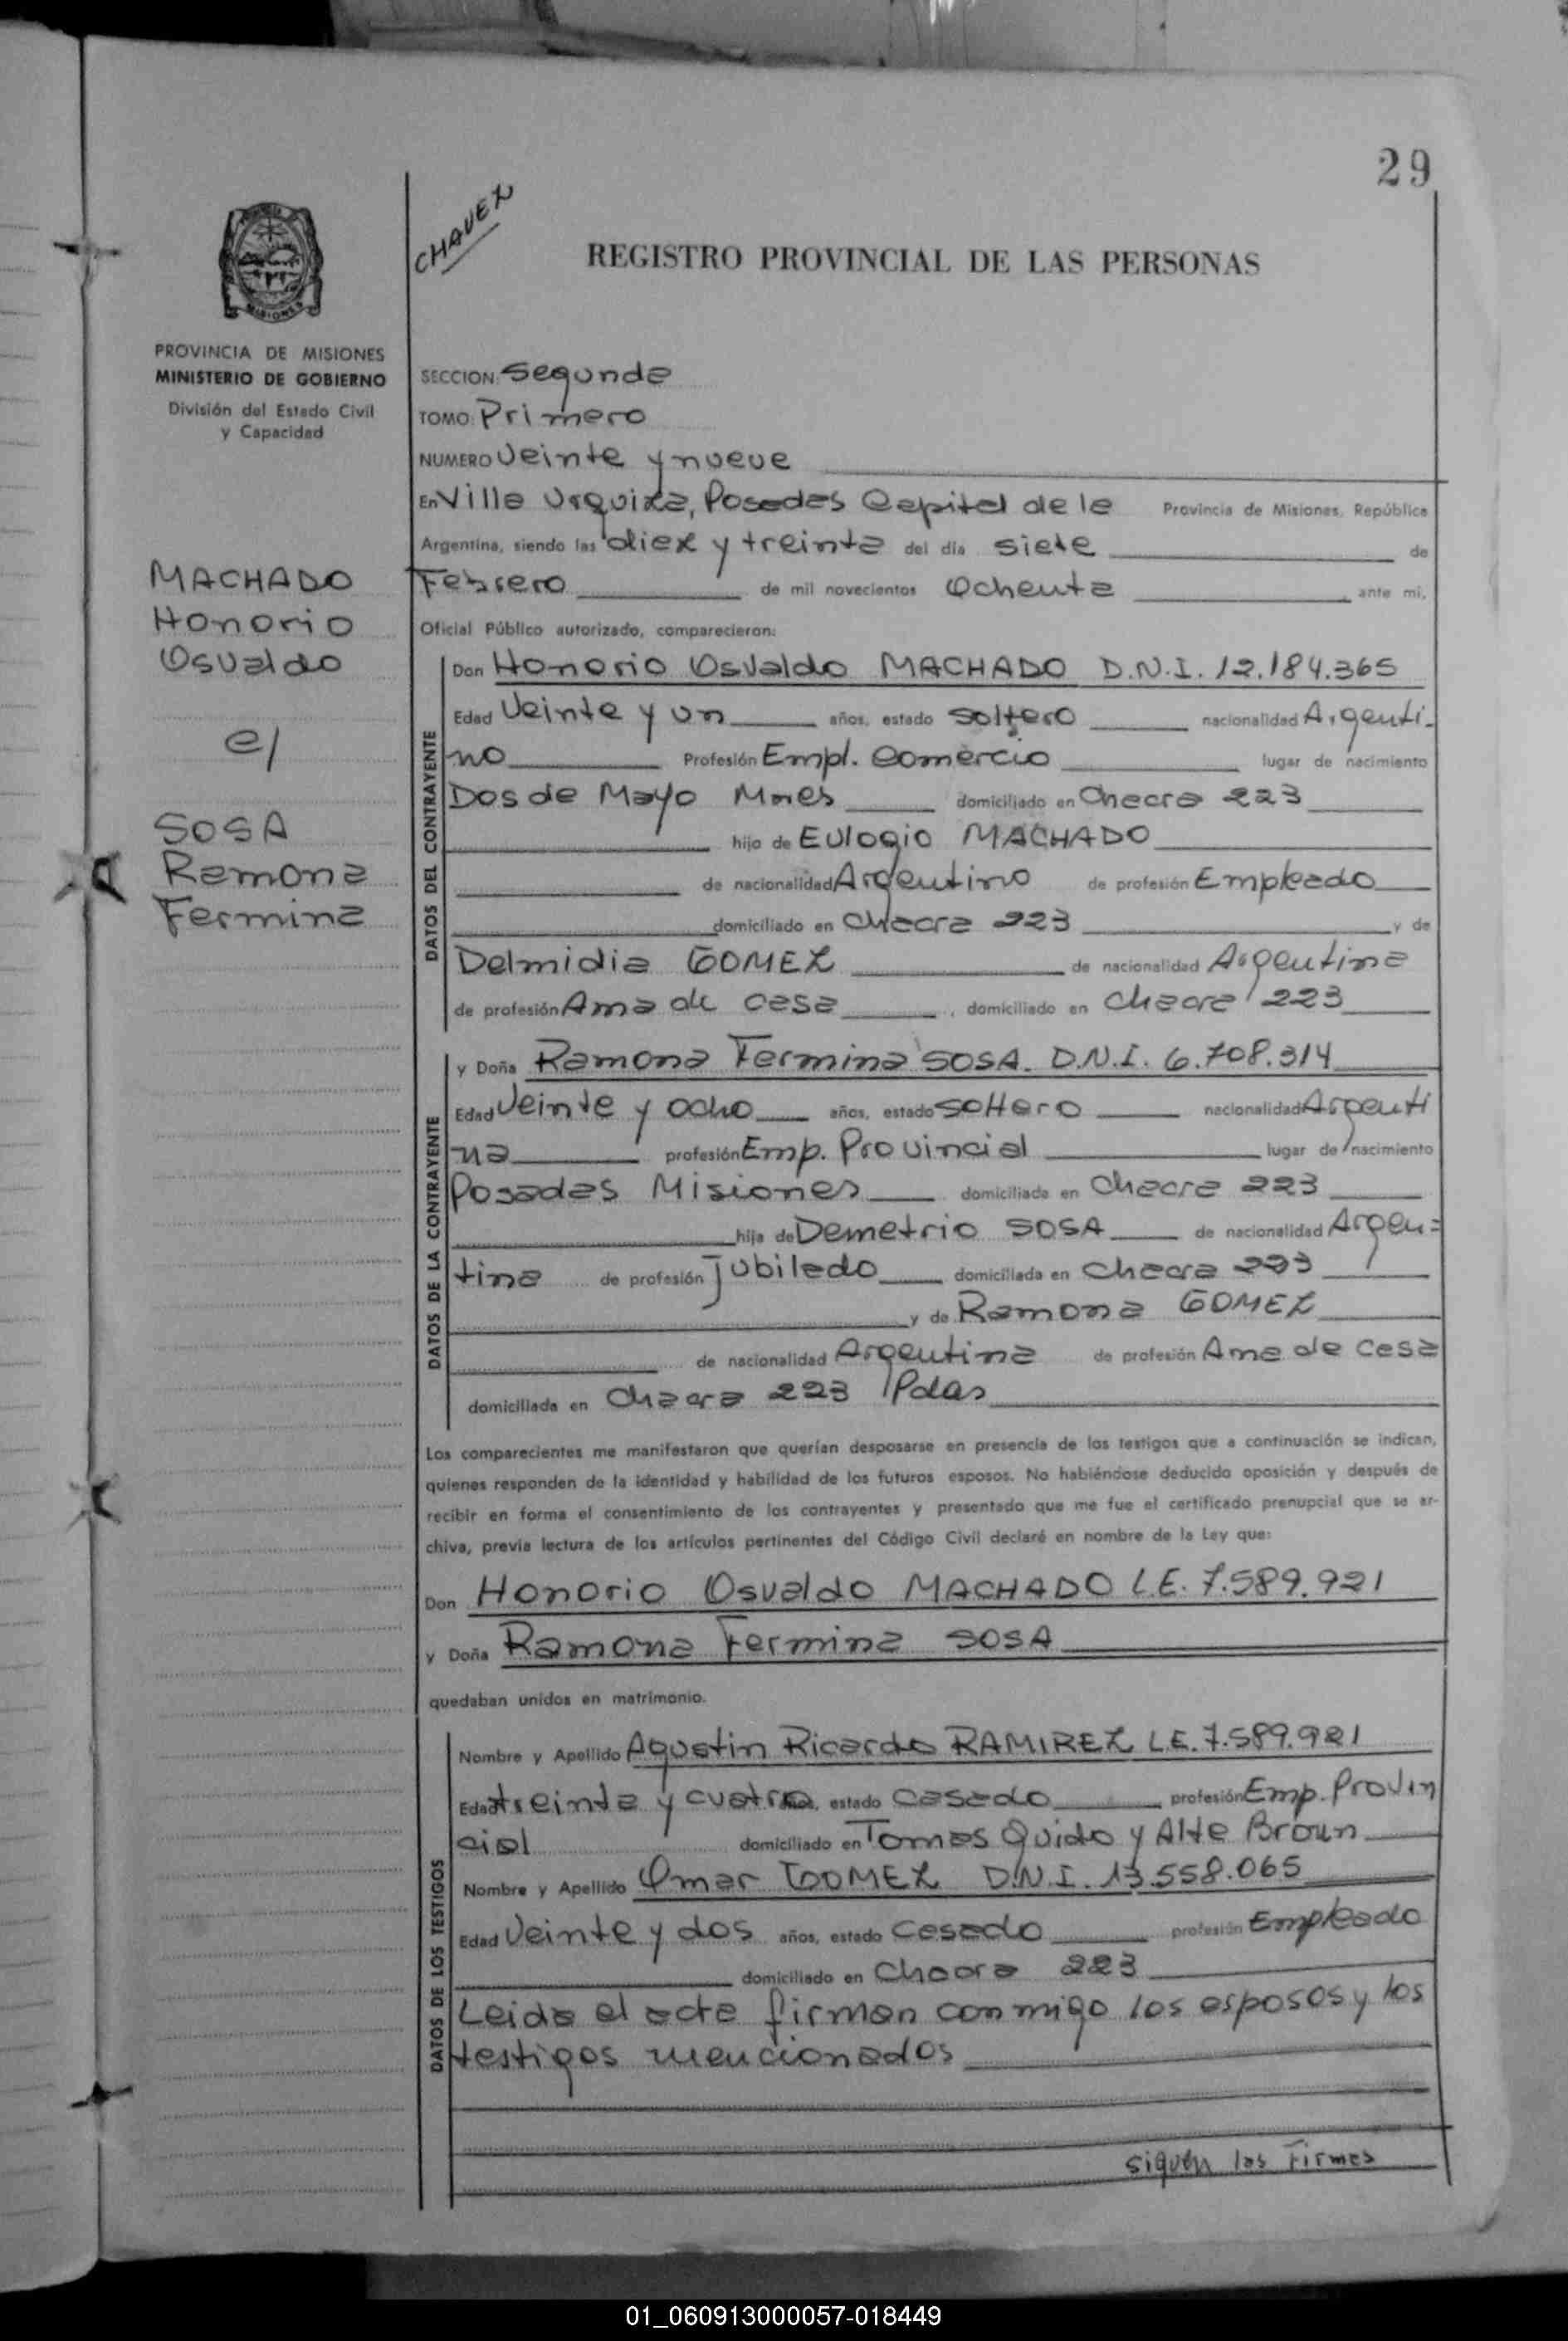 29
CHAVEZ
REGISTRO PROVINCIAL DE LAS PERSONAS
PROVINCIA DE MISIONES
MINISTERIO DE GOBIERNO
División del Estado Civil
y Capacidad
MACHADO
Honorio
Osvaldo
c/
SOSA
Ramona
Fermina
SECCION: Segunda
TOMO: Primero
NUMERO Veinte y nueve
En Villa Urquiza, Posadas Capital de la Provincia de Misiones, República
Argentina, siendo las diez y treinta del día siete de
Febrero de mil novecientos Ochenta, ante mi,
Oficial Público autorizado, comparecieron:
DATOS DEL CONTRAYENTE
Don Honorio Osvaldo MACHADO D.N.I. 12.184.365
Edad Veinte y un años, estado soltero nacionalidad Argenti-
no Profesión Empl. Comercio lugar de nacimiento
Dos de Mayo Mnes domiciliado en Chacra 223
hijo de Eulogio MACHADO
de nacionalidad Argentino de profesión Empleado
domiciliado en Chacra 223 y de
Delmidia GOMEZ de nacionalidad Argentina
de profesión Ama de casa, domiciliado en Chacra 223
DATOS DE LA CONTRAYENTE
y Doña Ramona Fermina SOSA. D.N.I. 6.708.314
Edad Veinte y ocho años, estado soltero nacionalidad Argenti
na profesión Emp. Provincial lugar de nacimiento
Posadas Misiones domiciliada en Chacra 223
hija de Demetrio SOSA de nacionalidad Argen=
tina de profesión Jubilado domiciliada en Chacra 223
y de Ramona GOMEZ
de nacionalidad Argentina de profesión Ama de casa
domiciliada en Chacra 223 Pdas
Los comparecientes me manifestaron que querían desposarse en presencia de los testigos que a continuación se indican,
quienes responden de la identidad y habilidad de los futuros esposos. No habiéndose deducido oposición y después de
recibir en forma el consentimiento de los contrayentes y presentado que me fue el certificado prenupcial que se ar-
chiva, previa lectura de los artículos pertinentes del Código Civil declaré en nombre de la Ley que:
Don Honorio Osvaldo MACHADO L.E. 7.589.921
y Doña Ramona Fermina SOSA
quedaban unidos en matrimonio.
DATOS DE LOS TESTIGOS
Nombre y Apellido Agustin Ricardo RAMIREZ L.E. 7.589.921
Edad treinta y cuatro años, estado Casado profesión Emp. Provin
cial domiciliado en Tomas Guido y Alte Broun
Nombre y Apellido Omar GOMEZ D.N.I. 13.558.065
Edad Veinte y dos años, estado Casado profesión Empleado
domiciliado en Chacra 223
Leida el acta firman conmigo los esposos y los
testigos mencionados
siguen las Firmas
01_060913000057-018449